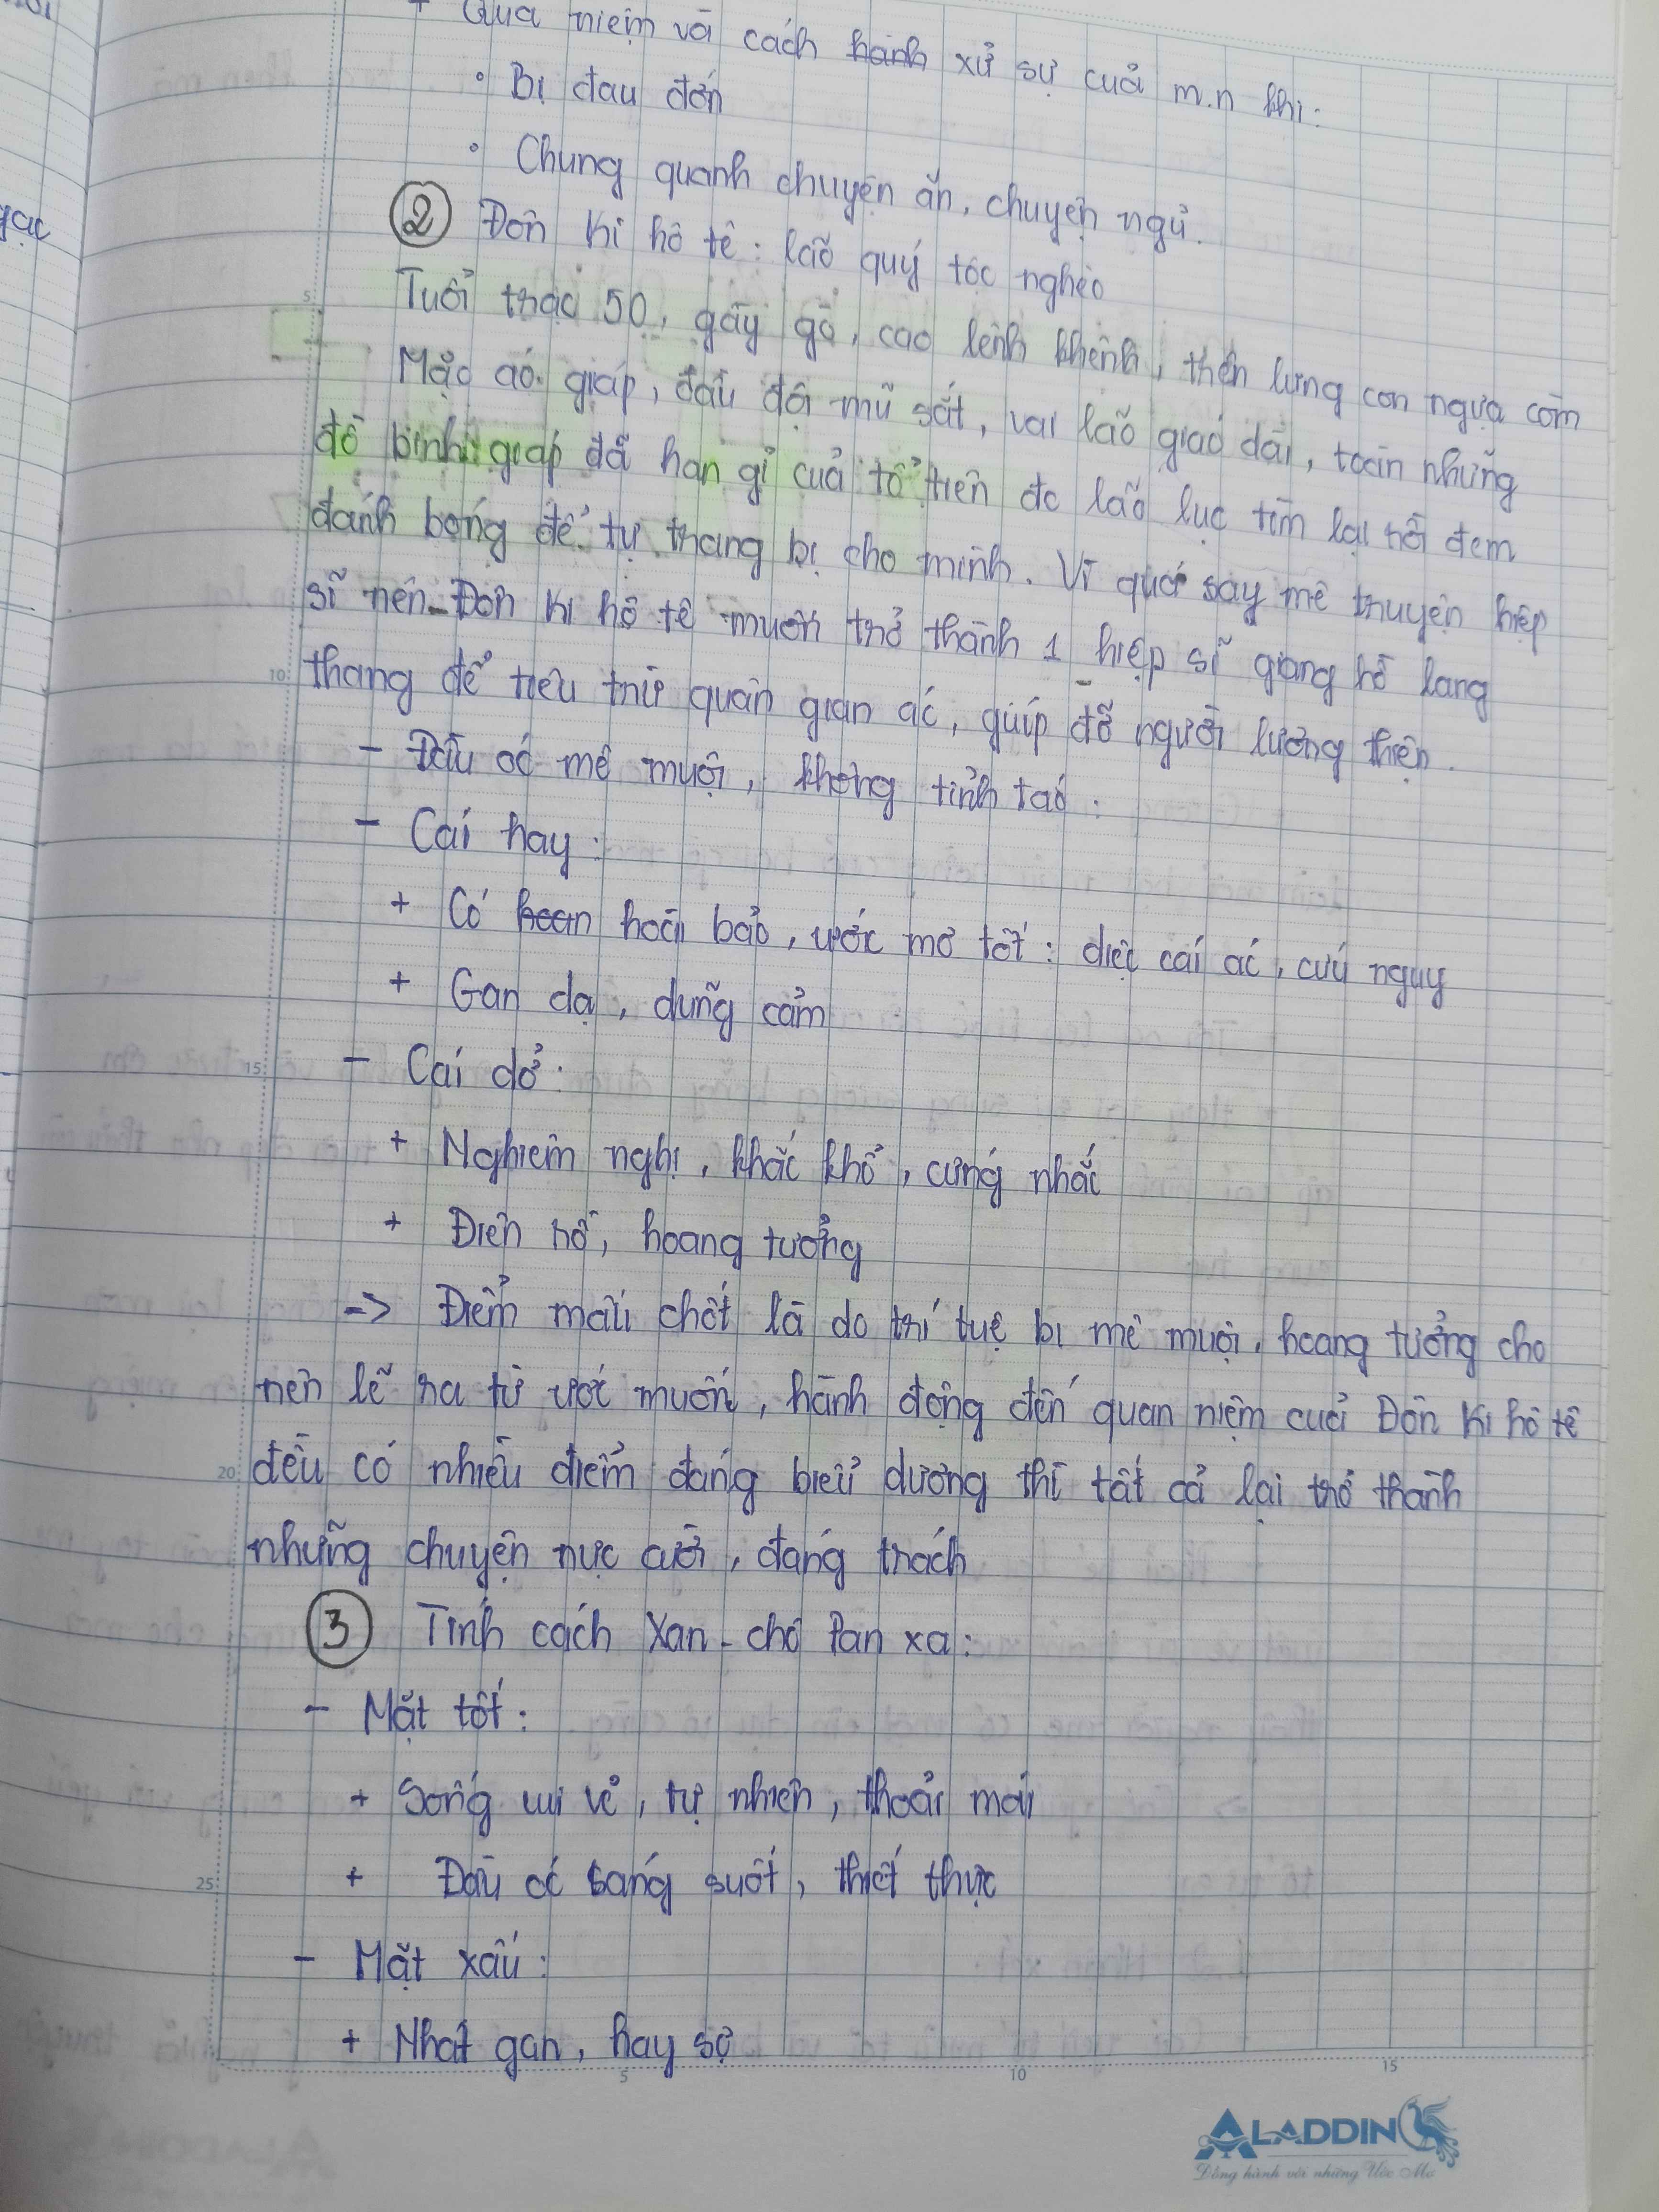 + Qua niệm và cách hành xử sự cuả m.n khi:
• Bị đau đớn
• Chung quanh chuyện ăn, chuyện ngủ.
② Đôn Ki hô tê: lão quý tộc nghèo
Tuổi trạc 50, gầy gò, cao lênh khênh, trên lưng con ngựa còm
Mặc áo giáp, đầu đội mũ sắt, vai lão giáo dài, toàn những
đồ binh giáp đã han gỉ cuả tổ tiên do lão lục tìm lại rồi đem
đánh bóng để tự trang bị cho mình. Vì quá say mê truyện hiệp
sĩ nên Đôn Ki hô tê muốn trở thành 1 hiệp sĩ giang hồ lang
thang để tiêu trừ quân gian ác, giúp đỡ người lương thiện.
- Đầu óc mê muội, không tỉnh táo.
- Cái hay:
+ Có hoài bảo, ước mơ tốt: diệt cái ác, cứu nguy
+ Gan dạ, dũng cảm
- Cái dở:
+ Nghiêm nghị, khắc khổ, cứng nhắc
+ Điên rồ, hoang tưởng
-> Điểm mấu chốt là do trí tuệ bị mê muội, hoang tưởng cho
nên lẽ ra từ ước muốn, hành động đến quan niệm cuả Đôn Ki hô tê
đều có nhiều điểm đáng biểu dương thì tất cả lại trở thành
những chuyện nực cười, đáng trách
③ Tính cách Xan-chô Pan xa:
- Mặt tốt:
+ Sống vui vẻ, tự nhiên, thoải mái
+ Đầu óc sáng suốt, thiết thực
- Mặt xấu:
+ Nhát gan, hay sợ
5 10 15
ALADDIN
Đồng hành với những Ước Mơ